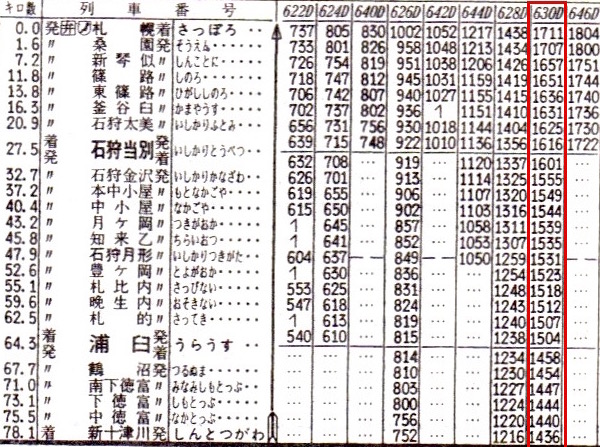 キロ数 列車番号 622D 624D 640D 626D 642D 644D 628D 630D 646D
0.0 発弁 札幌着 さっぽろ‥‥‥ 737 805 830 1002 1052 1217 1438 1711 1804
1.6 〃 桑園〃 そうえん‥‥‥ 733 801 826 958 1048 1213 1434 1707 1800
7.2 〃 新琴似〃 しんことに‥‥ 726 754 819 951 1038 1206 1426 1657 1751
11.8 〃 篠路〃 しのろ‥‥‥ 718 747 812 945 1031 1159 1419 1651 1744
13.8 〃 東篠路〃 ひがししのろ‥‥ 706 742 807 940 1027 1155 1415 1636 1740
16.3 〃 釜谷臼〃 かまやうす‥‥ 702 737 802 936 1 1151 1410 1631 1736
20.9 〃 石狩太美〃 いしかりふとみ‥‥ 656 731 756 930 1018 1144 1404 1625 1730
27.5 着 石狩当別 発 いしかりとうべつ‥ 639 715 748 922 1010 1136 1356 1616 1722
発 着 632 708 … 919 … 1120 1337 1601 …
32.7 〃 石狩金沢発 いしかりかなざわ‥ 626 701 … 913 … 1114 1325 1555 …
37.2 〃 本中小屋〃 もとなかごや‥‥ 619 655 … 906 … 1107 1320 1549 …
40.4 〃 中小屋〃 なかごや‥‥‥ 615 650 … 902 … 1103 1316 1544 …
43.2 〃 月ケ岡〃 つきがおか‥‥ 1 645 … 857 … 1058 1311 1539 …
45.8 〃 知来乙〃 ちらいおつ‥‥ 1 641 … 852 … 1053 1307 1535 …
47.9 〃 石狩月形〃 いしかりつきがた‥ 604 637 … 849 … 1050 1259 1531 …
52.6 〃 豊ケ岡〃 とよがおか‥‥ 1 630 … 836 … … 1254 1523 …
55.1 〃 札比内〃 さっぴない‥‥ 553 625 … 831 … … 1248 1518 …
59.1 〃 晩生内〃 おそきない‥‥ 547 618 … 824 … … 1243 1512 …
62.5 〃 札的〃 さってき‥‥‥ 1 613 … 819 … … 1240 1507 …
64.3 着 浦臼 発 うらうす‥‥ 540 610 … 815 … … 1238 1504 …
発 着 … … … 814 … … 1234 1458 …
67.7 〃 鶴沼発 つるぬま‥‥‥ … … … 810 … … 1230 1454 …
71.0 〃 南下徳富〃 みなみしもとっぷ‥ … … … 803 … … 1227 1447 …
73.1 〃 下徳富〃 しもとっぷ‥‥ … … … 800 … … 1224 1444 …
75.5 〃 中徳富〃 なかとっぷ‥‥ … … … 756 … … 1220 1440 …
78.1 着 新十津川発 しんとつがわ … … … 752 … … 1216 1436 …